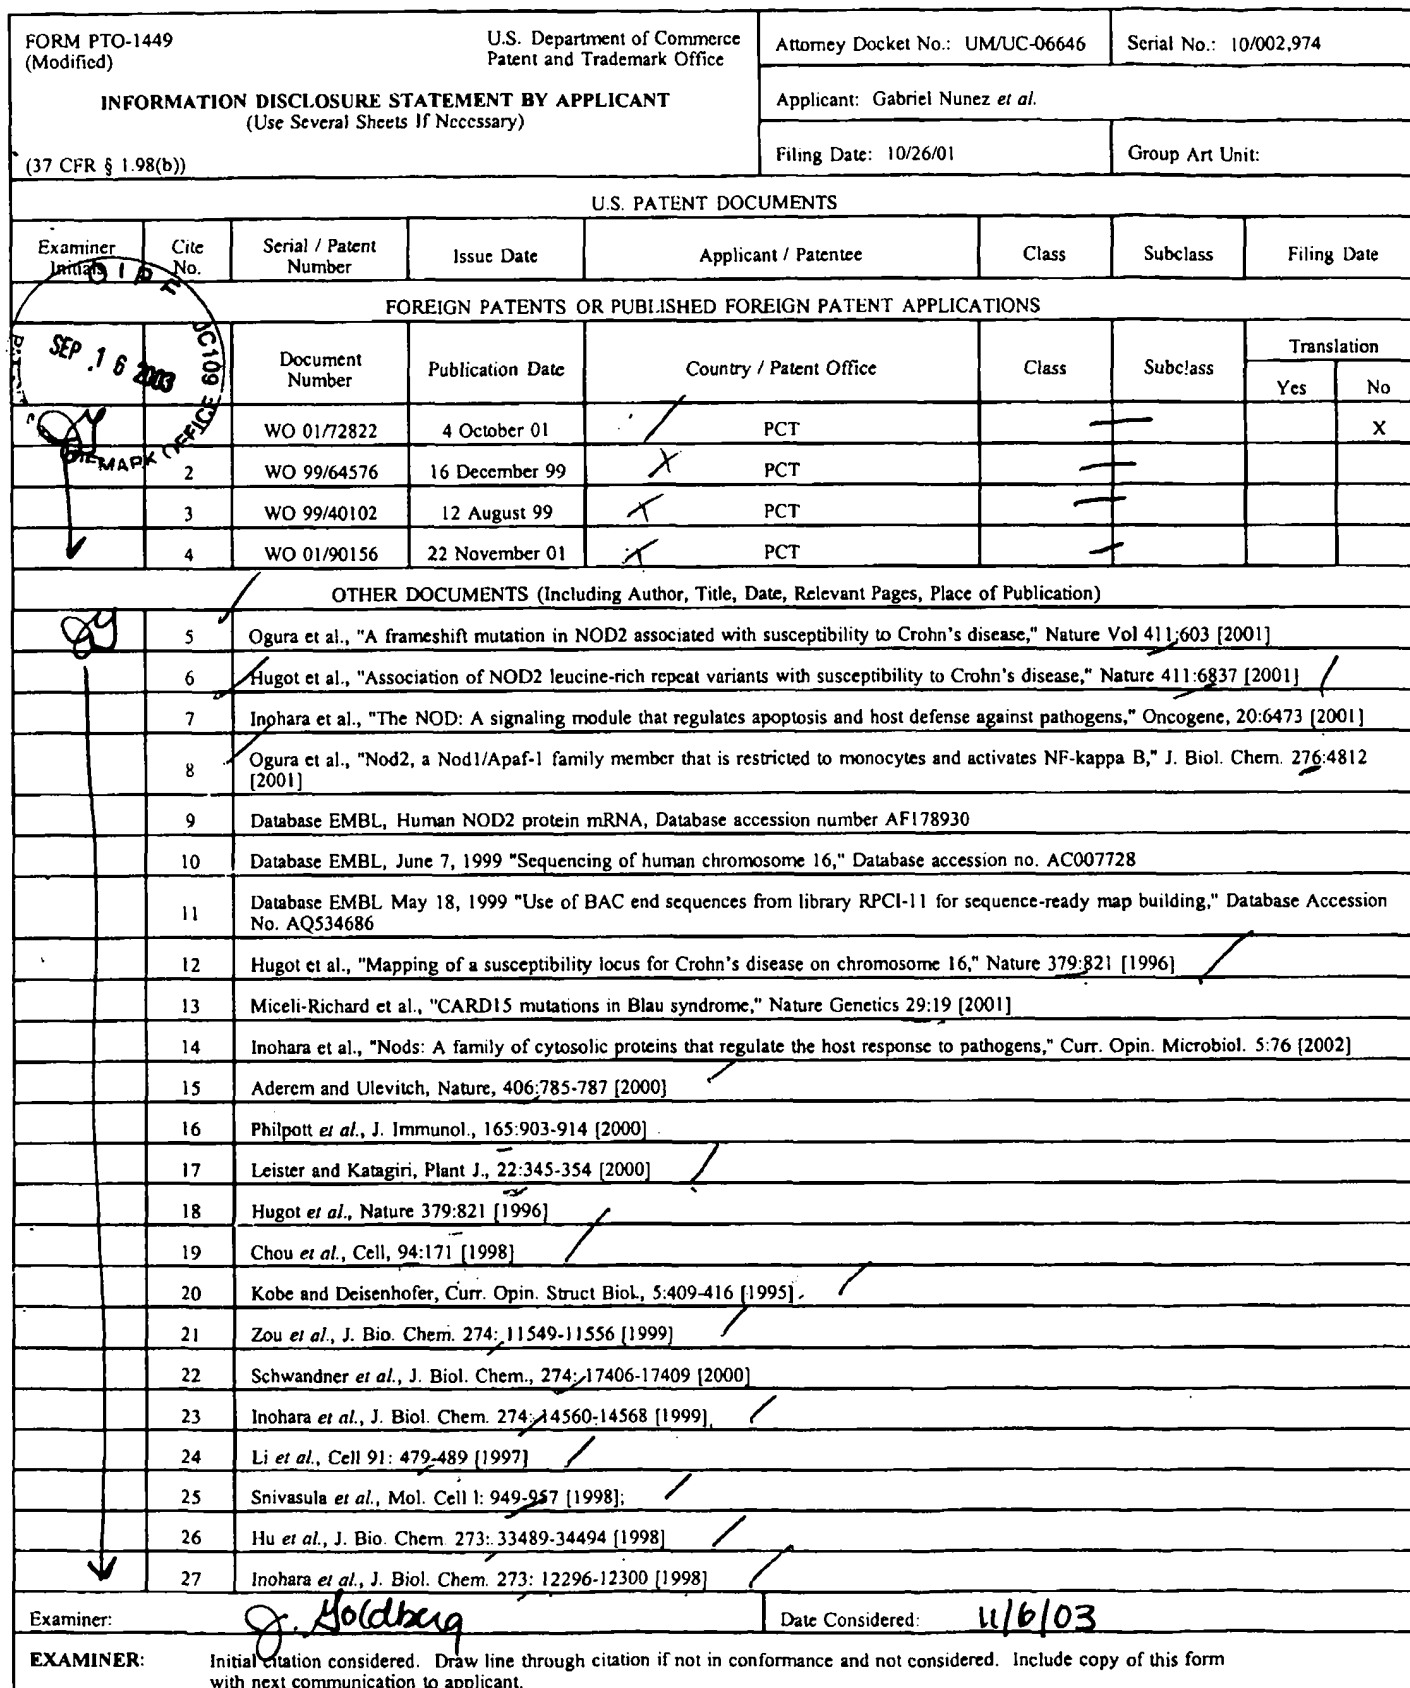 FORM PTO-1449 U.S. Department of Commerce
(Modified) Patent and Trademark Office
Attorney Docket No.: UM/UC-06646 Serial No.: 10/002,974
INFORMATION DISCLOSURE STATEMENT BY APPLICANT
(Use Several Sheets If Necessary)
Applicant: Gabriel Nunez et al.
(37 CFR § 1.98(b))
Filing Date: 10/26/01 Group Art Unit:
U.S. PATENT DOCUMENTS
Examiner Initials Cite No. Serial / Patent Number Issue Date Applicant / Patentee Class Subclass Filing Date
OIPE JC109
SEP 16 2003
FOREIGN PATENTS OR PUBLISHED FOREIGN PATENT APPLICATIONS
Document Number Publication Date Country / Patent Office Class Subclass Translation
Yes No
WO 01/72822 4 October 01 PCT X
2 WO 99/64576 16 December 99 PCT
3 WO 99/40102 12 August 99 PCT
4 WO 01/90156 22 November 01 PCT
OTHER DOCUMENTS (Including Author, Title, Date, Relevant Pages, Place of Publication)
5 Ogura et al., "A frameshift mutation in NOD2 associated with susceptibility to Crohn's disease," Nature Vol 411:603 [2001]
6 Hugot et al., "Association of NOD2 leucine-rich repeat variants with susceptibility to Crohn's disease," Nature 411:6837 [2001]
7 Inohara et al., "The NOD: A signaling module that regulates apoptosis and host defense against pathogens," Oncogene, 20:6473 [2001]
8 Ogura et al., "Nod2, a Nod1/Apaf-1 family member that is restricted to monocytes and activates NF-kappa B," J. Biol. Chem. 276:4812
[2001]
9 Database EMBL, Human NOD2 protein mRNA, Database accession number AF178930
10 Database EMBL, June 7, 1999 "Sequencing of human chromosome 16," Database accession no. AC007728
11 Database EMBL May 18, 1999 "Use of BAC end sequences from library RPCI-11 for sequence-ready map building," Database Accession
No. AQ534686
12 Hugot et al., "Mapping of a susceptibility locus for Crohn's disease on chromosome 16," Nature 379:821 [1996]
13 Miceli-Richard et al., "CARD15 mutations in Blau syndrome," Nature Genetics 29:19 [2001]
14 Inohara et al., "Nods: A family of cytosolic proteins that regulate the host response to pathogens," Curr. Opin. Microbiol. 5:76 [2002]
15 Aderem and Ulevitch, Nature, 406:785-787 [2000]
16 Philpott et al., J. Immunol., 165:903-914 [2000]
17 Leister and Katagiri, Plant J., 22:345-354 [2000]
18 Hugot et al., Nature 379:821 [1996]
19 Chou et al., Cell, 94:171 [1998]
20 Kobe and Deisenhofer, Curr. Opin. Struct Biol., 5:409-416 [1995].
21 Zou et al., J. Bio. Chem. 274: 11549-11556 [1999]
22 Schwandner et al., J. Biol. Chem., 274: 17406-17409 [2000]
23 Inohara et al., J. Biol. Chem. 274: 14560-14568 [1999],
24 Li et al., Cell 91: 479-489 [1997]
25 Snivasula et al., Mol. Cell 1: 949-957 [1998];
26 Hu et al., J. Bio. Chem. 273: 33489-34494 [1998]
27 Inohara et al., J. Biol. Chem. 273: 12296-12300 [1998]
Examiner: J. Goldberg Date Considered: 11/6/03
EXAMINER: Initial citation considered. Draw line through citation if not in conformance and not considered. Include copy of this form
with next communication to applicant.